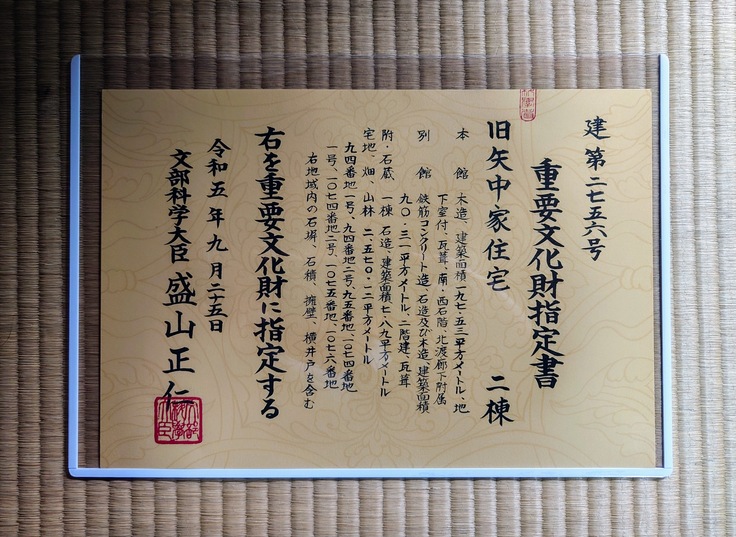 建第二七五六号
重要文化財指定書
旧矢中家住宅 二棟
本館 木造、建築面積一九七・五三平方メートル、地
下室付、瓦葺、南・西石階、北渡廊下附属
別館 鉄筋コンクリート造、石造及び木造、建築面積
九〇・三一平方メートル、二階建、瓦葺
附・石蔵 一棟 石造、建築面積七・八九平方メートル
宅地、畑、山林 二、五七〇・一二平方メートル
九四番地一号、九四番地二号、九五番地、一〇七四番地
一号、一〇七四番地二号、一〇七五番地、一〇七六番地
右地域内の石塀、石積、擁壁、横井戸を含む
右を重要文化財に指定する
令和五年九月二十五日
文部科学大臣 盛山正仁